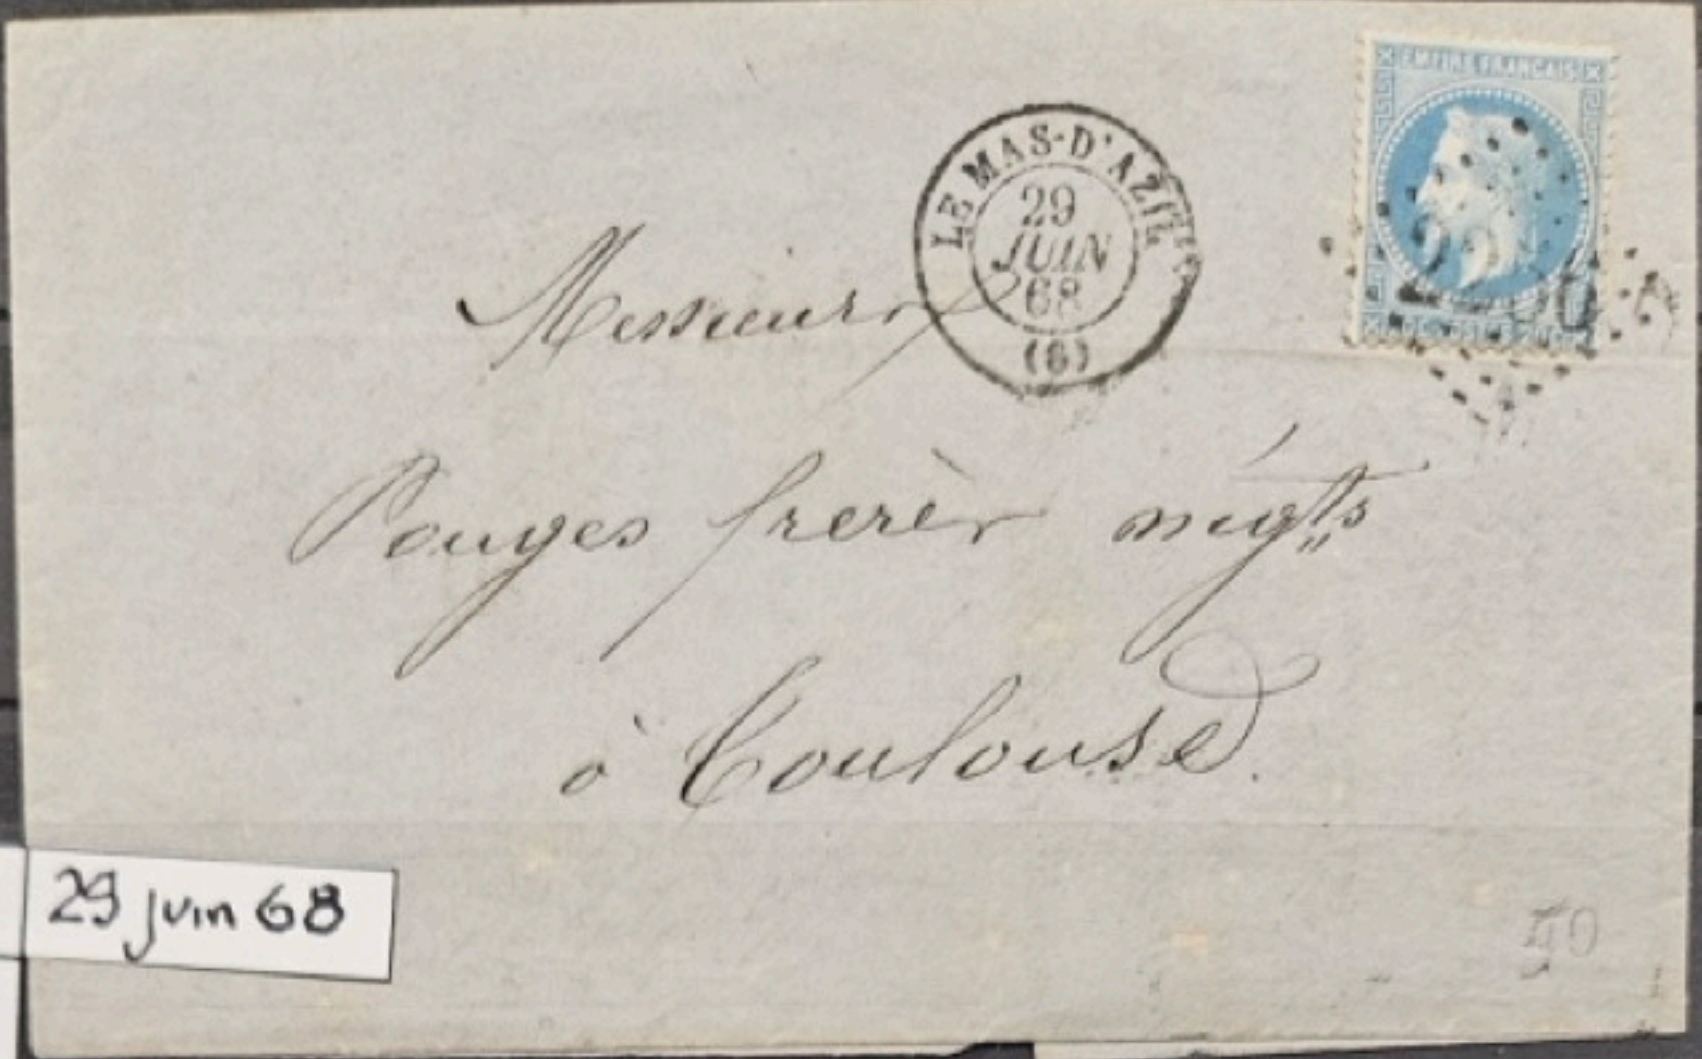 EMPIRE FRANCAIS
LE MAS-D'AZIL
29
JUIN
68
(8)
Messieurs
Pouges frerès négts
à Toulouse.
29 juin 68
50